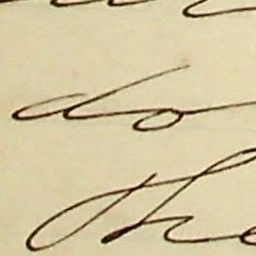 do
the